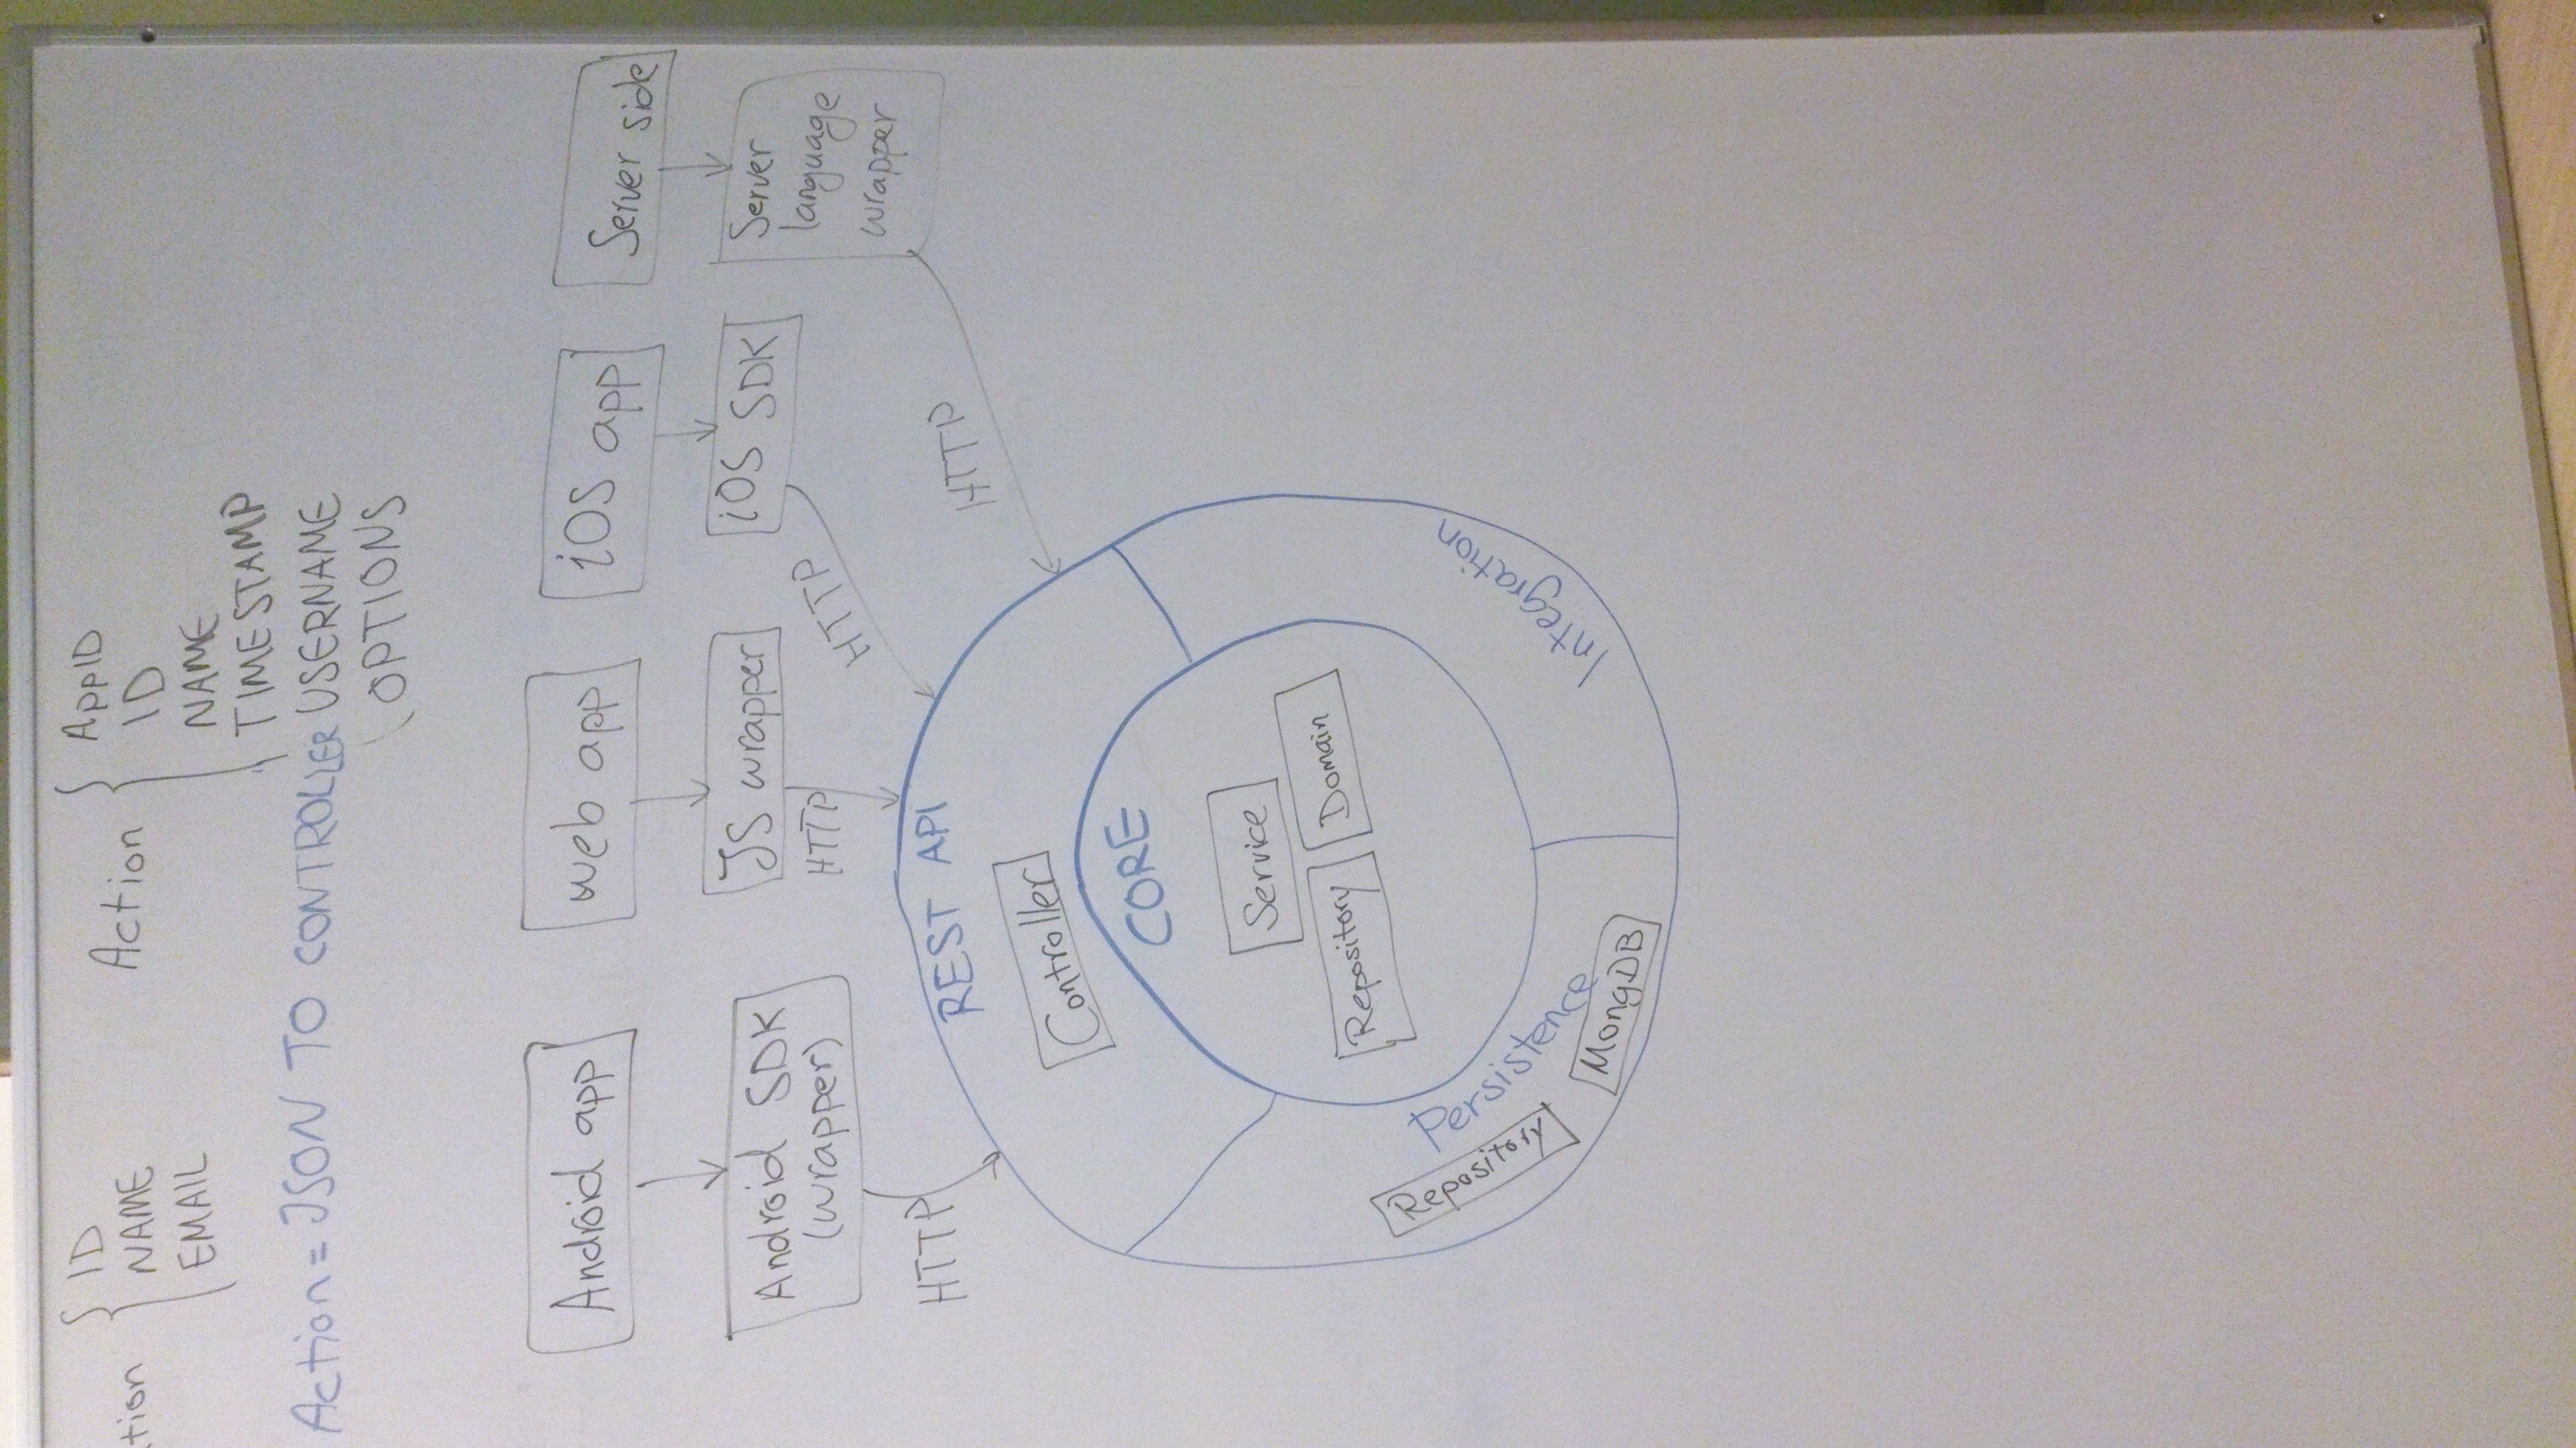 tion
ID
NAME
EMAIL
Action
AppID
ID
NAME
TIMESTAMP
USERNAME
OPTIONS
Action = JSON TO CONTROLLER
Android app
web app
iOS app
Server side
Android SDK
(wrapper)
JS wrapper
iOS SDK
Server
language
wrapper
HTTP
HTTP
HTTP
HTTP
REST API
Controller
CORE
Service
Repository
Domain
Repository
Persistence
MongDB
Integration